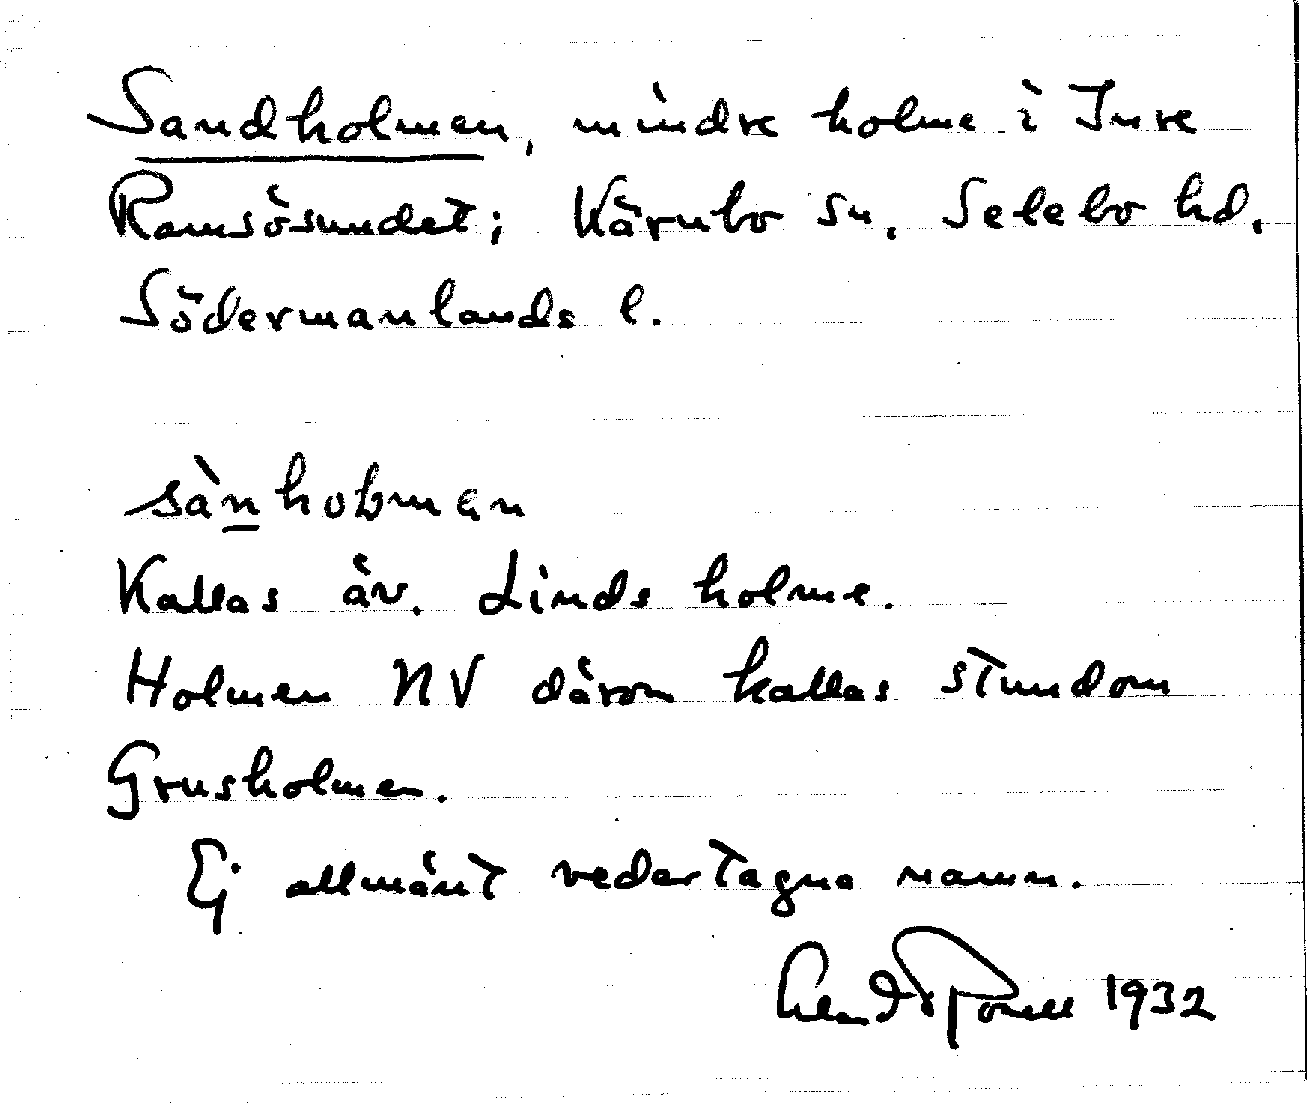 Sandholmen, mindre holme i Inre
Ramsösundet; Kärnbo sn, Selebo hd,
Södermanlands l.
sànhoƚmen
Kallas äv. Linds holme.
Holmen NV därom kallas stundom
Grusholmen.
Ej allmänt vedertagna namn.
1932